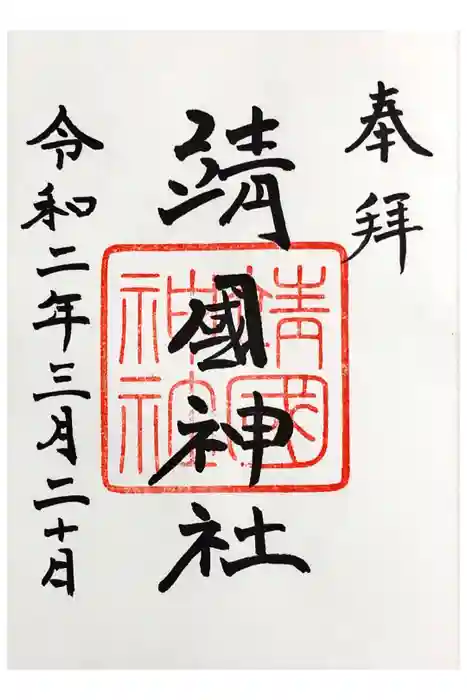 奉拝
靖國神社
靖國神社
令和二年三月二十日